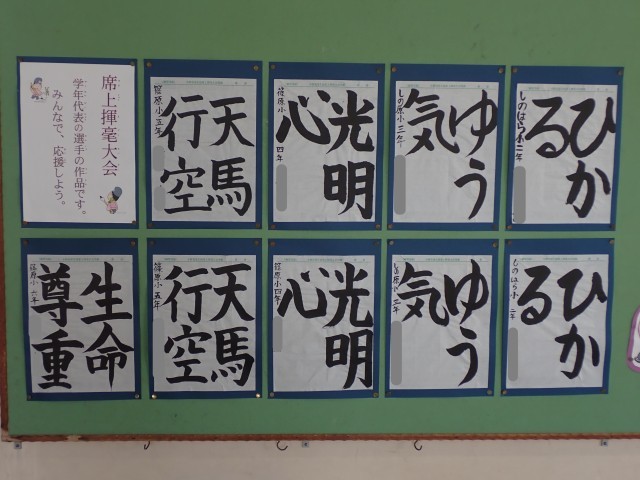 席上揮毫大会
学年代表の選手の作品です。
みんなで、応援しよう。
天馬
行空
篠原小五年
光明
心
篠原小四年
ゆう
気
しの原小三年
ひか
る
しのはら小二年
生命
尊重
篠原小六年
天馬
行空
篠原小五年
光明
心
篠原小四年
ゆう
気
篠原小三年
ひか
る
しのはら小二年